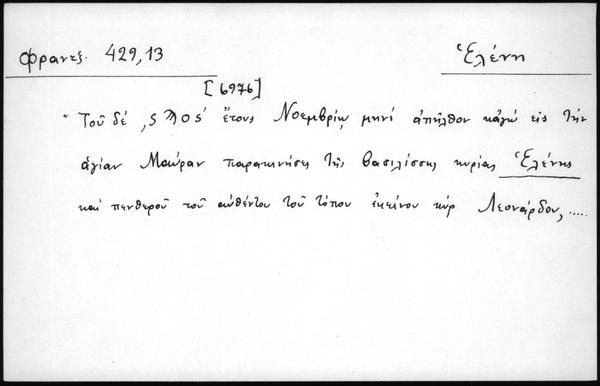 Φραντζ. 429,13
Ἑλένη
[6976]
"Τοῦ δέ ,ϛϡος' ἔτους Νοεμβρίῳ μηνί ἀπῆλθον κἀγώ εἰς τήν
ἁγίαν Μαύραν παρακινήσει τῆς βασιλίσσης κυρίας Ἑλένης
καί πενθεροῦ τοῦ αὐθέντου τοῦ τόπου ἐκείνου κύρ Λεονάρδου, .....